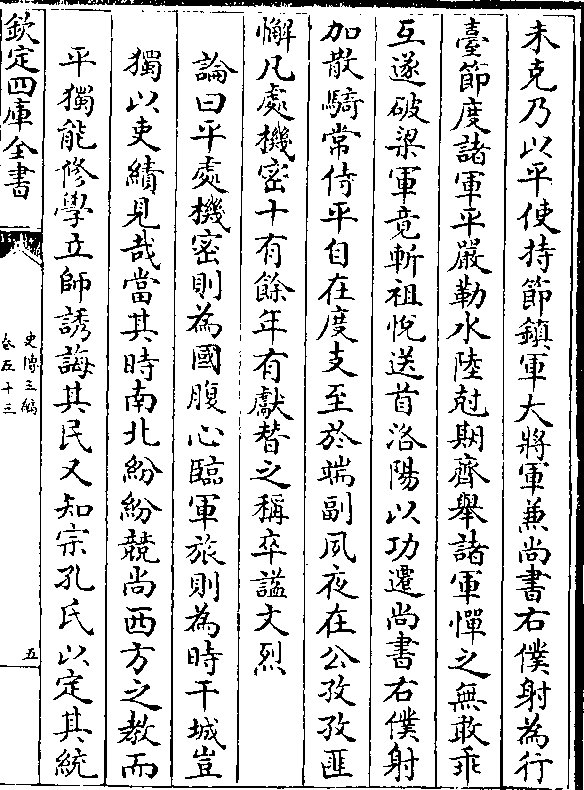 未克乃以平使持節鎮軍大將軍兼尚書右僕射為行
臺節度諸軍平嚴勒水陸尅期齊舉諸軍憚之無敢乖
互遂破梁軍竟斬祖悅送首洛陽以功遷尚書右僕射
加散騎常侍平自在度支至於端副夙夜在公孜孜匪
懈凡處機密十有餘年有獻替之稱卒諡文烈
論曰平處機密則為國腹心臨軍旅則為時干城豈
獨以吏績見哉當其時南北紛紛競尚西方之教而
平獨能修學立師誘誨其民又知宗孔氏以定其統
欽定四庫全書
史傳三編
卷五十三
五